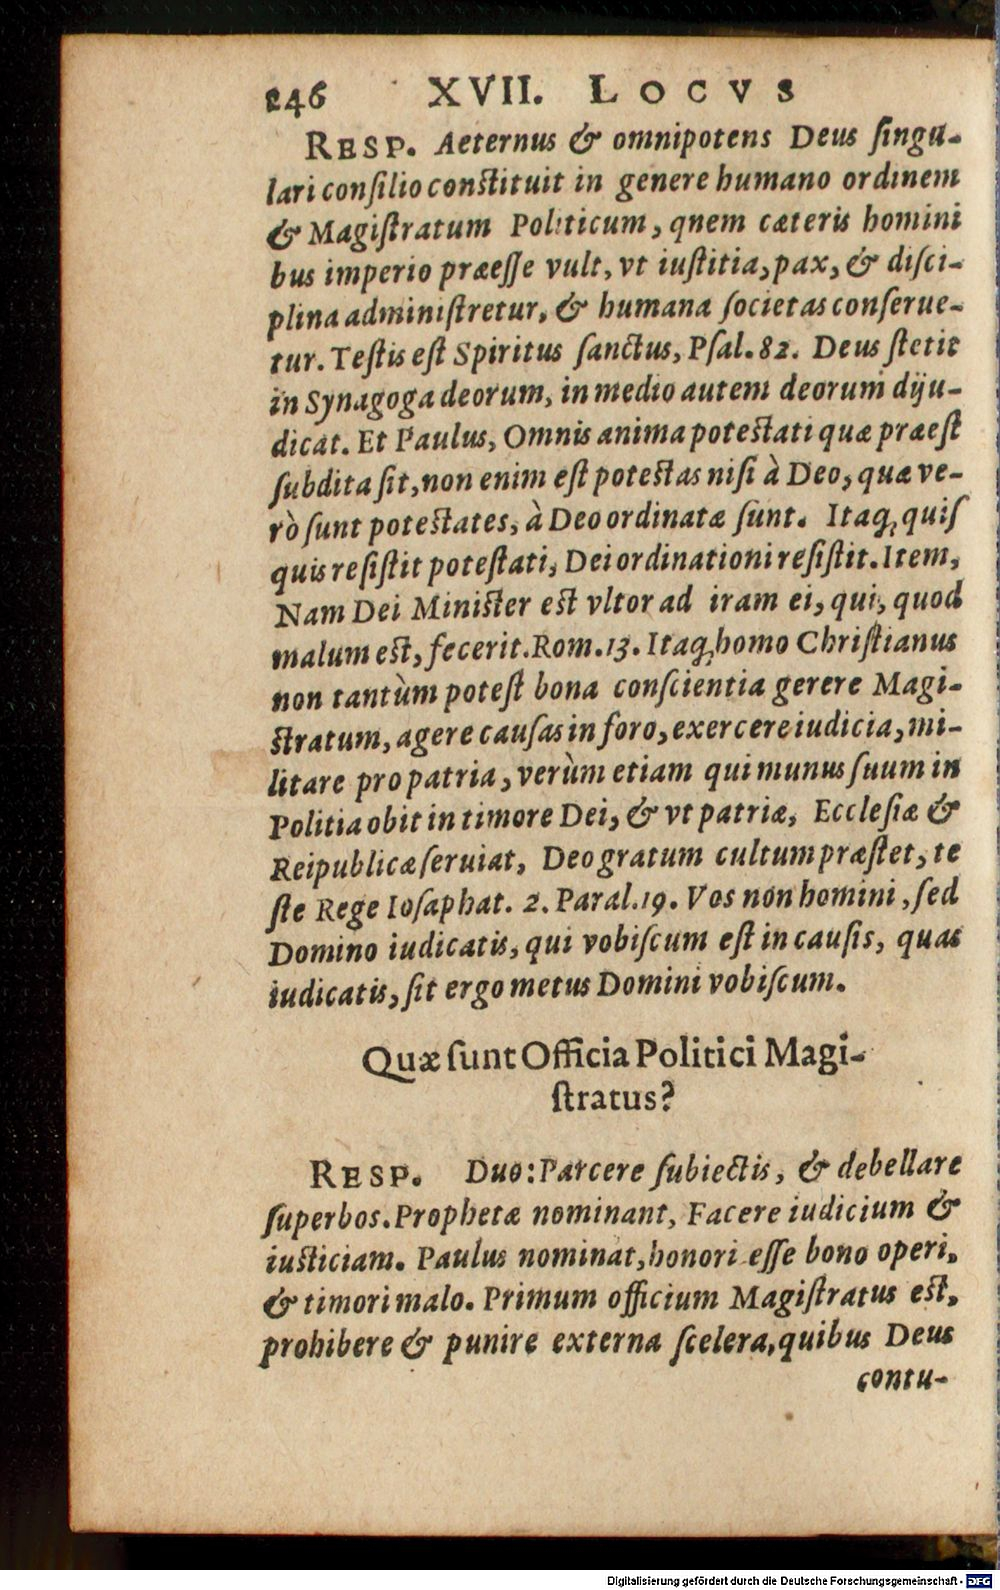 246 XVII. LOCVS
RESP. Aeternus & omnipotens Deus ſingu-
lari conſilio constituit in genere humano ordinem
& Magiſtratum Politicum, qnem cæteris homini
bus imperio præeſſe vult, vt iuſtitia, pax, & diſci-
plina adminiſtretur, & humana ſocietas conſerue-
tur. Teſtis eſt Spiritus ſanctus, Pſal. 82. Deus ſtetit
in Synagoga deorum, in medio autem deorum diju-
dicat. Et Paulus, Omnis anima potestati quæ præeſt
ſubdita ſit, non enim eſt potestas niſi à Deo, quæ ve-
rò ſunt potestates, à Deo ordinatæ ſunt. Itaq; quiſ
quis reſiſtit poteſtati, Dei ordinationi reſiſtit. Item,
Nam Dei Minister est vltor ad iram ei, qui, quod
malum est, fecerit. Rom. 13. Itaq; homo Chriſtianus
non tantùm poteſt bona conſcientia gerere Magi-
stratum, agere cauſas in foro, exercere iudicia, mi-
litare pro patria, verùm etiam qui munus ſuum in
Politia obit in timore Dei, & vt patriæ, Eccleſiæ &
Reipublicæ ſeruiat, Deo gratum cultum præſtet, te
ſte Rege Ioſaphat. 2. Paral. 19. Vos non homini, ſed
Domino iudicatis, qui vobiſcum eſt in cauſis, quas
iudicatis, ſit ergo metus Domini vobiſcum.
Quæ ſunt Officia Politici Magi-
ſtratus?
RESP. Duo: Parcere ſubiectis, & debellare
ſuperbos. Prophetæ nominant, Facere iudicium &
iusticiam. Paulus nominat, honori eſſe bono operi,
& timori malo. Primum officium Magiſtratus est,
prohibere & punire externa ſcelera, quibus Deus
contu-
Digitalisierung gefördert durch die Deutsche Forschungsgemeinschaft - DFG